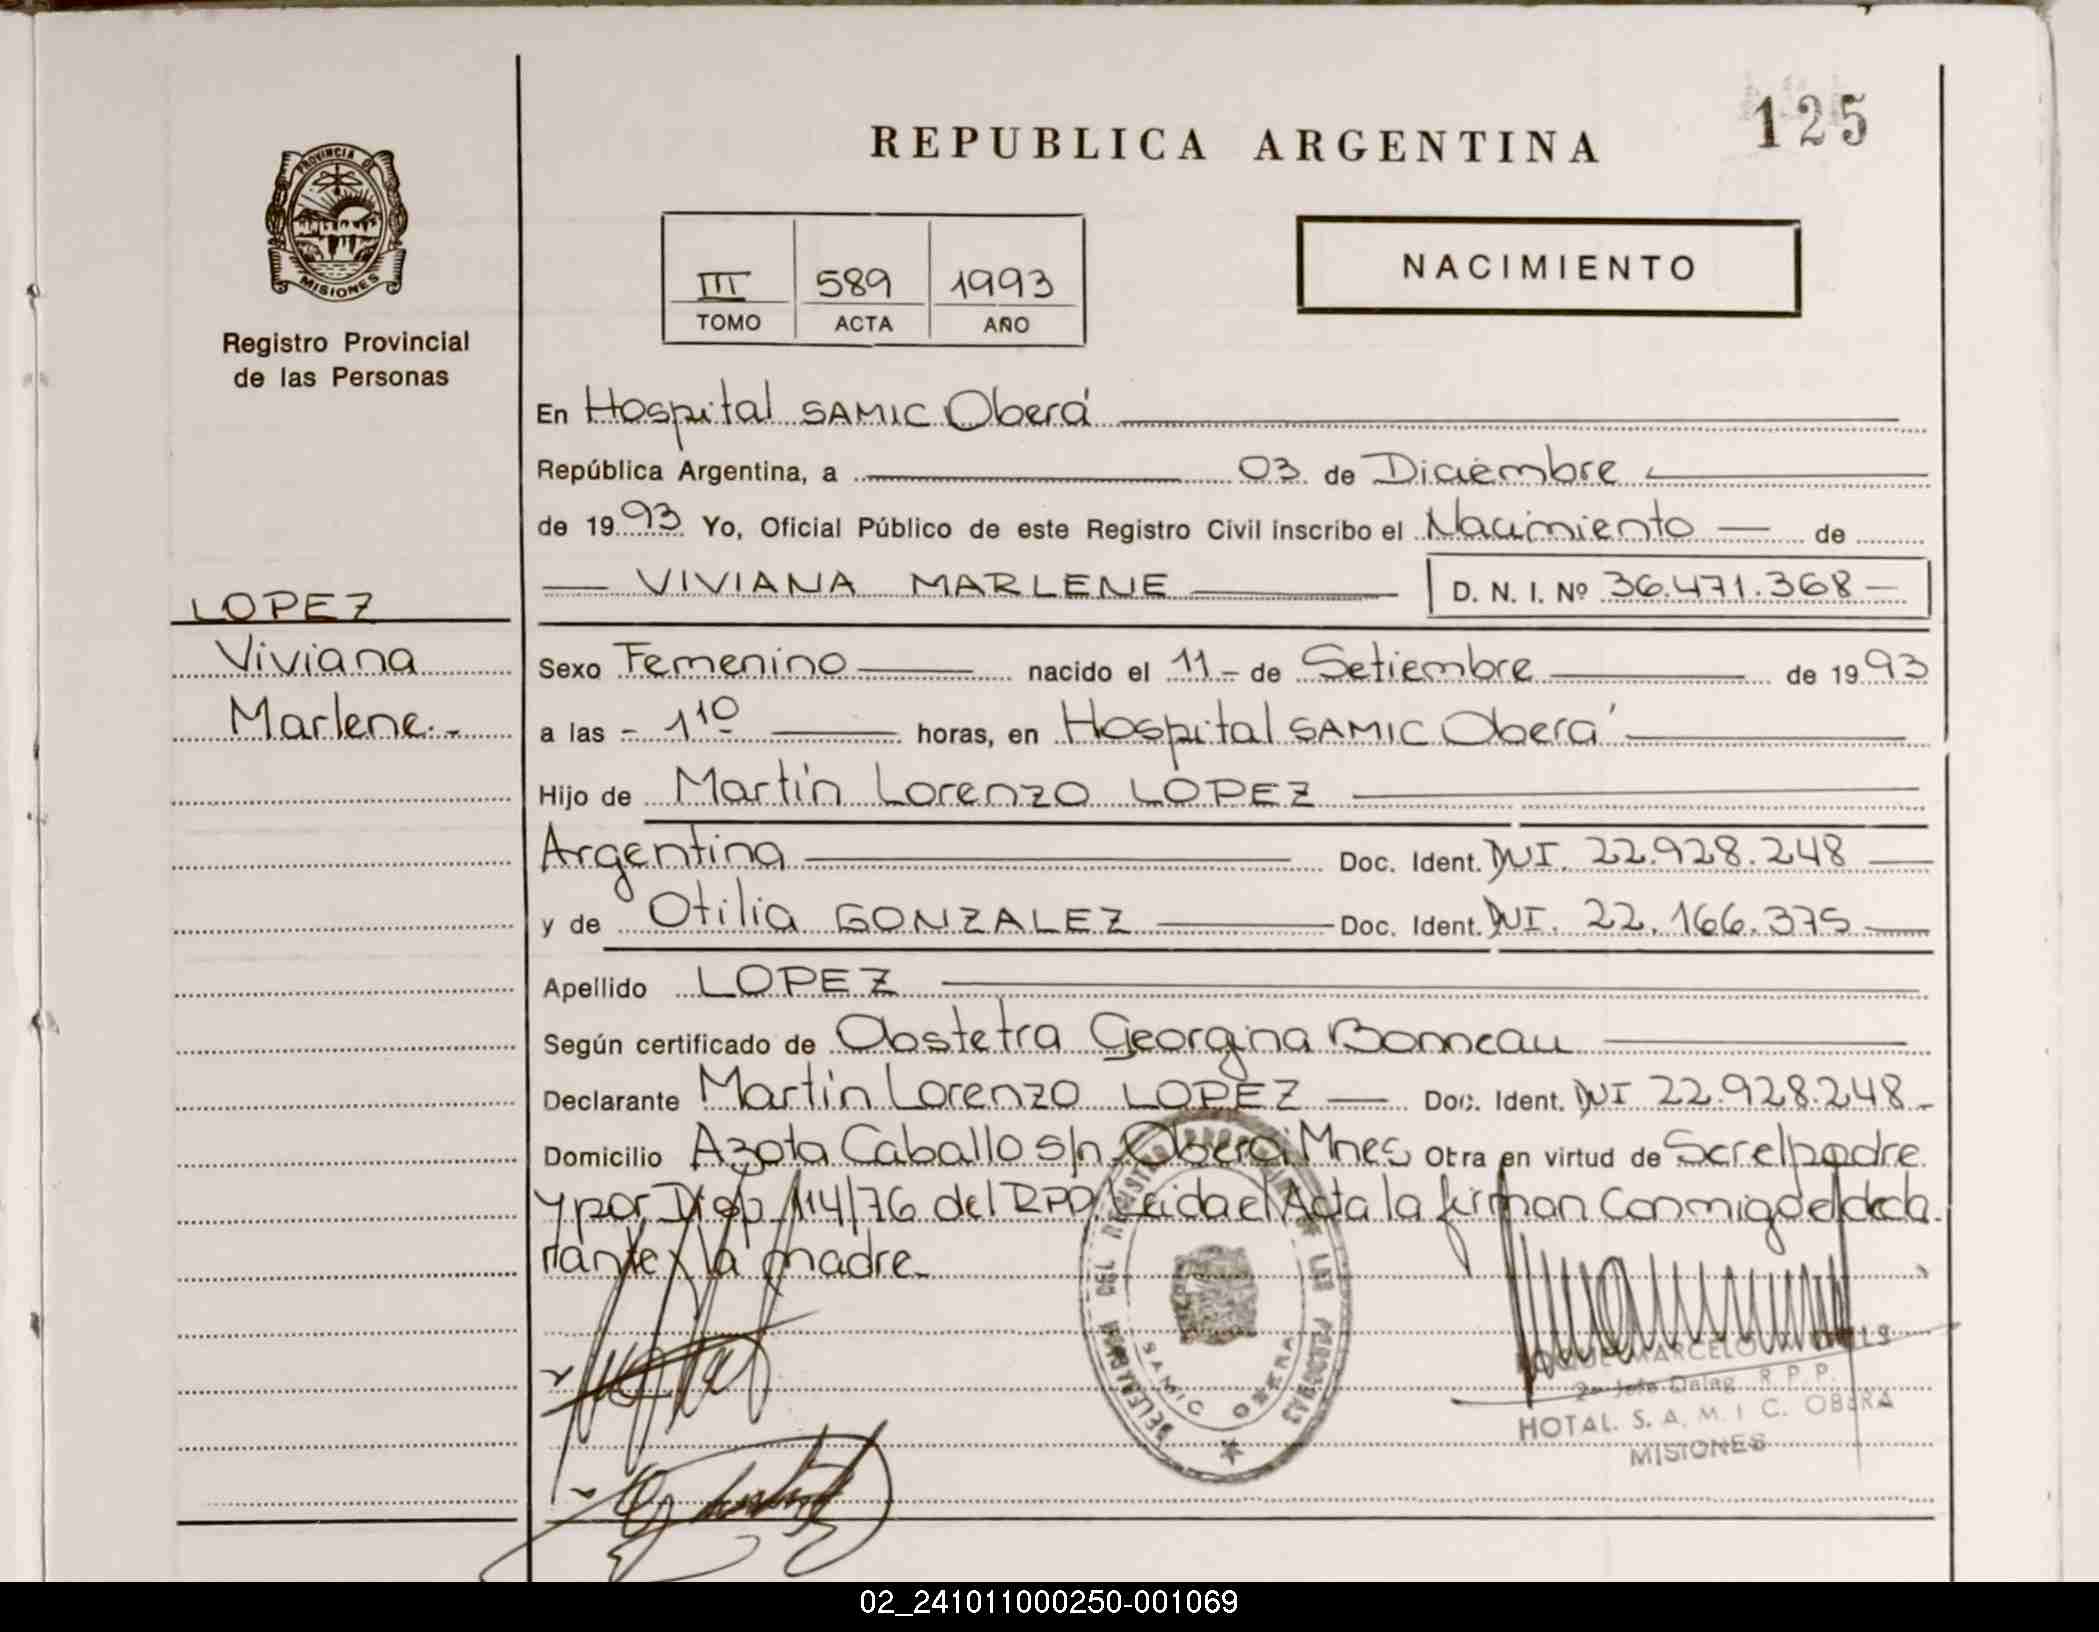 125
REPUBLICA ARGENTINA
PROVINCIA DE
MISIONES
Registro Provincial
de las Personas
III 589 1993
TOMO ACTA AÑO
NACIMIENTO
En Hospital SAMIC Oberá
República Argentina, a 03 de Diciembre
de 1993 Yo, Oficial Público de este Registro Civil inscribo el Nacimiento de
VIVIANA MARLENE D. N. I. Nº 36.471.368
LOPEZ
Viviana
Marlene.-
Sexo Femenino nacido el 11- de Setiembre de 1993
a las - 1 10 horas, en Hospital SAMIC Oberá
Hijo de Martín Lorenzo LOPEZ
Argentina Doc. Ident. DNI. 22.928.248
y de Otilia GONZALEZ Doc. Ident. DNI. 22.166.375
Apellido LOPEZ
Según certificado de Obstetra Georgina Bonneau
Declarante Martín Lorenzo LOPEZ Doc. Ident. DNI 22.928.248-
Domicilio Azota Caballo s/n Oberá Mnes Otra en virtud de Ser el padre
y por Disp. 114/76 del RPP. Leida el Acta la firman Conmigo el decla
rante y la madre.-
DEL REGISTRO LAS PERSONAS
SAMIC OBERA
MARCELO
2º Jefe Deleg. R. P. P.
HOTAL. S. A. M. I C. OBERA
MISIONES
02_241011000250-001069